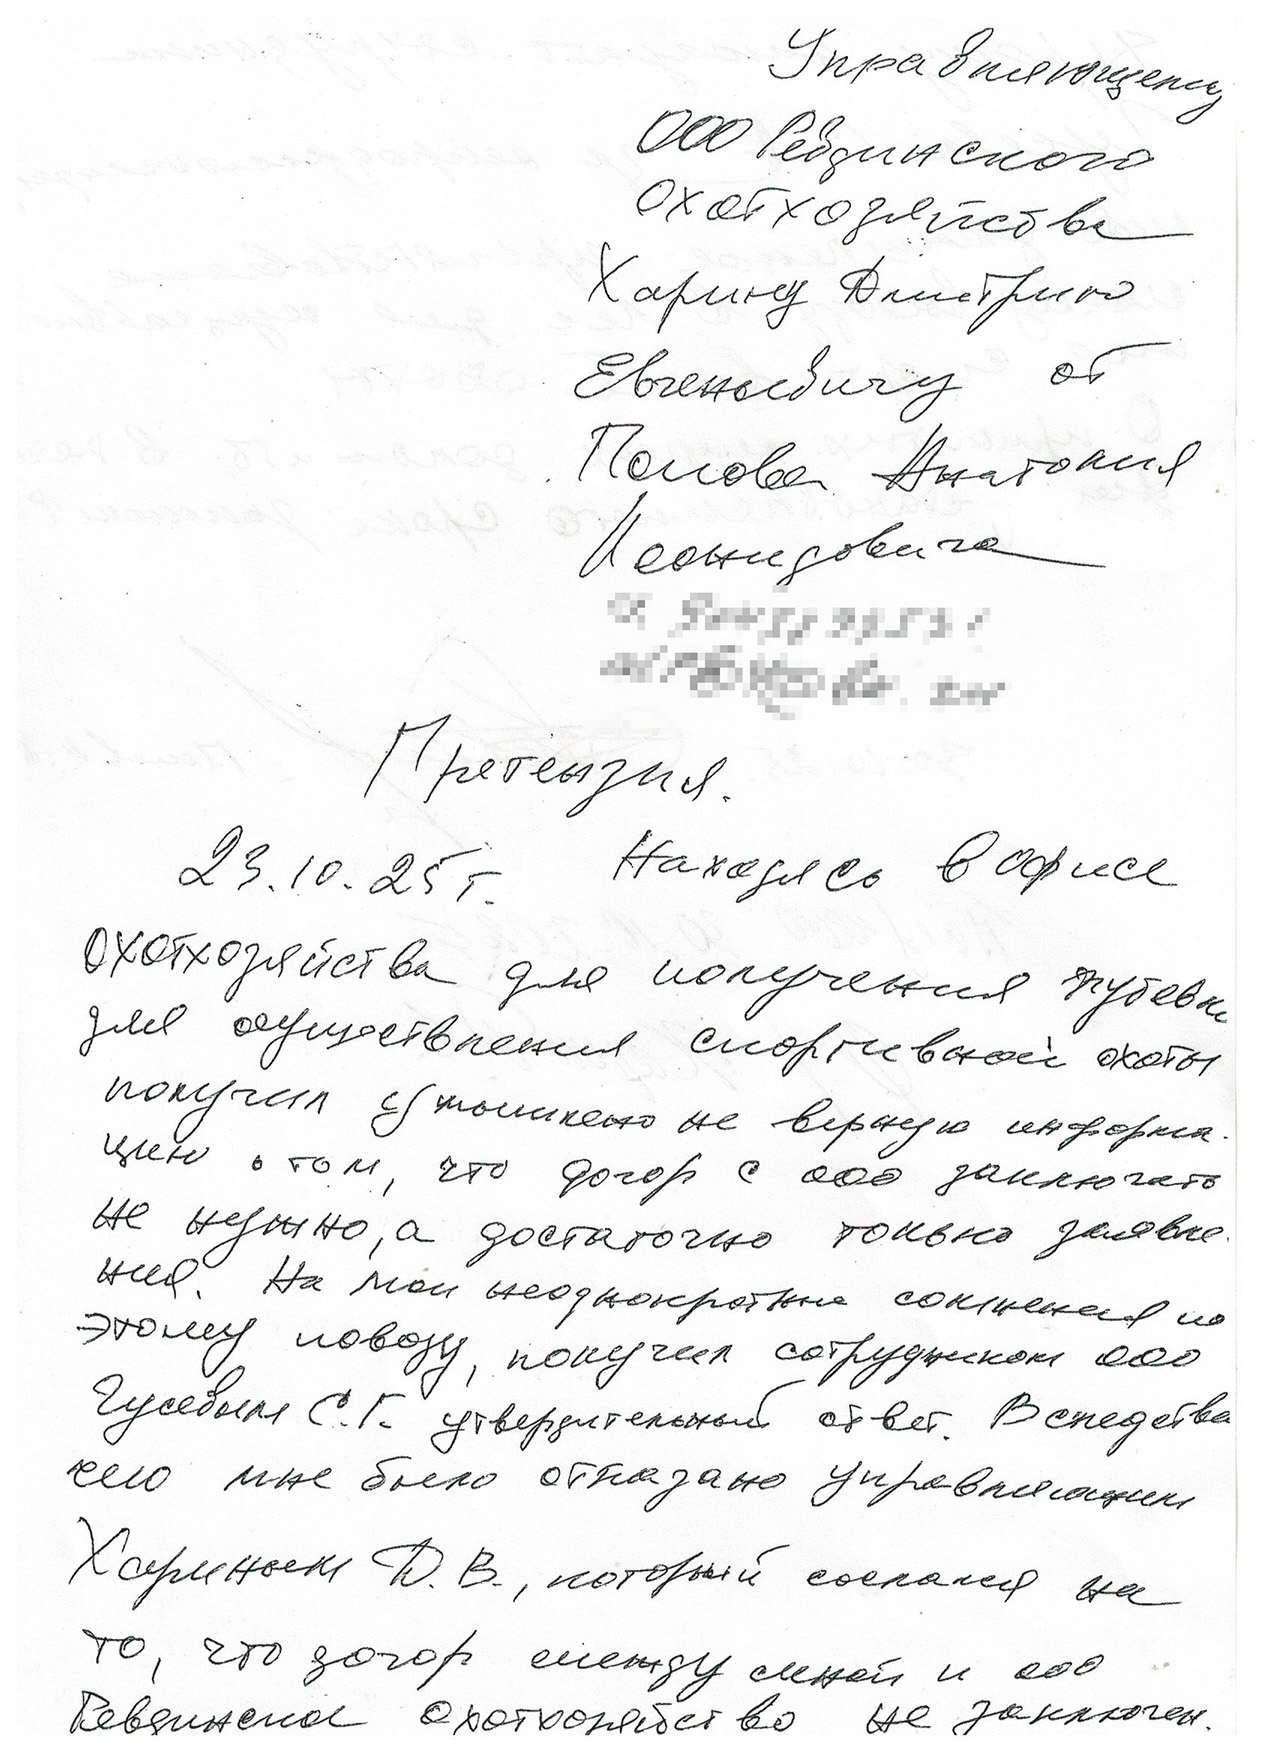 Управляющему
ООО Ревдинского
охотхозяйства
Харину Дмитрию
Евгеньевичу от
Попова Анатолия
Леонидовича
Претензия.
23.10.25г. Находясь в офисе
охотхозяйства для получения путевки
для осуществления спортивной охоты
получил умышлено не верную информа-
цию о том, что догор с ООО заключать
не нужно, а достаточно только заявле-
ния. На мои неоднократные сомнения по
этому поводу, получил сотрудником ООО
Гусевым С.Г. утвердительный ответ. Вследства
чего мне было отказано управляющим
Хариным Д.В., который сослался на
то, что догор между мной и ООО
Ревдинское охотхозяйство не заключен.